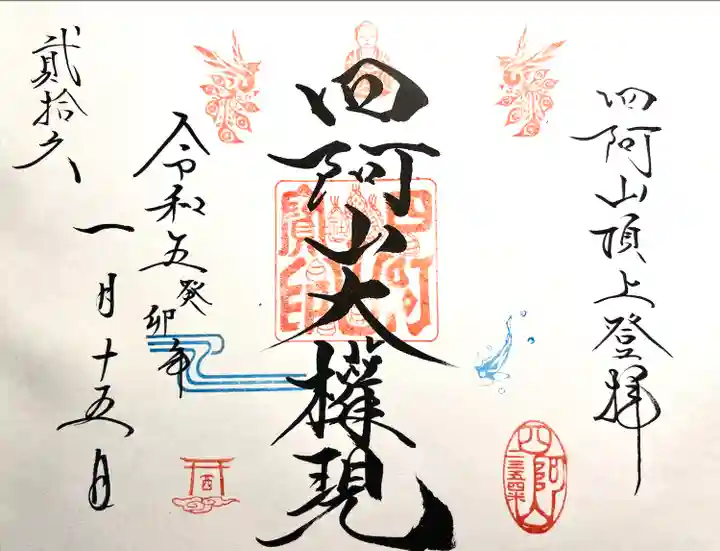 四阿山頂上登拝
四阿山大権現
令和五癸卯年
一月十五日
貳拾久
四阿山
二三五四米
西
四阿山
寶印